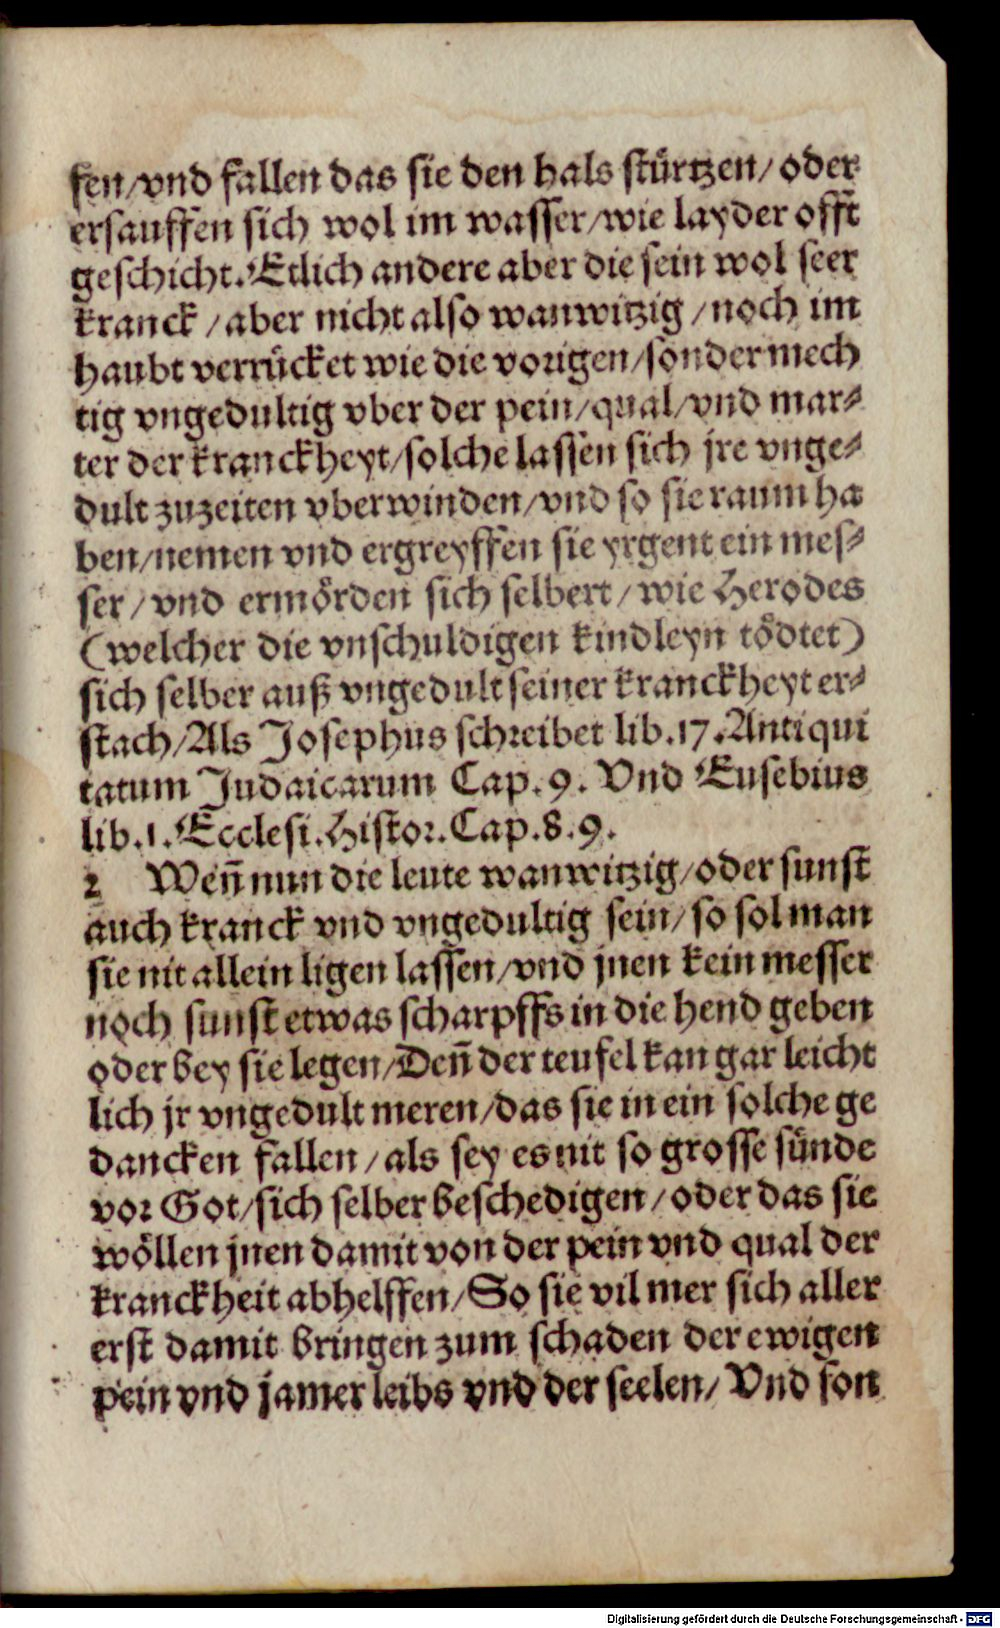 fen/vnd fallen das sie den hals stürtzen/ oder
ersauffen sich wol im wasser/wie layder offt
geschicht. Etlich andere aber die sein wol seer
kranck /aber nicht also wanwitzig /noch im
haubt verrücket wie die vorigen/sonder mech
tig vngedultig vber der pein/qual/vnd mar⸗
ter der kranckheyt/solche lassen sich jre vnge⸗
dult zuzeiten vberwinden/vnd so sie raum ha
ben/nemen vnd ergreyffen sie yrgent ein mes⸗
ser / vnd ermörden sich selbert / wie Herodes
(welcher die vnschuldigen kindleyn tödtet)
sich selber auß vngedult seiner kranckheyt er⸗
stach/Als Josephus schreibet lib.17.Antiqui
tatum Judaicarum Cap.9. Vnd Eusebius
lib.1.Ecclesi.Histor.Cap.8.9.
2 Wen̄ nun die leute wanwitzig/oder sunst
auch kranck vnd vngedultig sein/ so sol man
sie nit allein ligen lassen/vnd jnen kein messer
noch sunst etwas scharpffs in die hend geben
oder bey sie legen/Den̄ der teufel kan gar leicht
lich jr vngedult meren/das sie in ein solche ge
dancken fallen /als sey es nit so grosse sünde
vor Got/sich selber beschedigen /oder das sie
wöllen jnen damit von der pein vnd qual der
kranckheit abhelffen/So sie vil mer sich aller
erst damit bringen zum schaden der ewigen
pein vnd jamer leibs vnd der seelen/ Vnd son
Digitalisierung gefördert durch die Deutsche Forschungsgemeinschaft - DFG